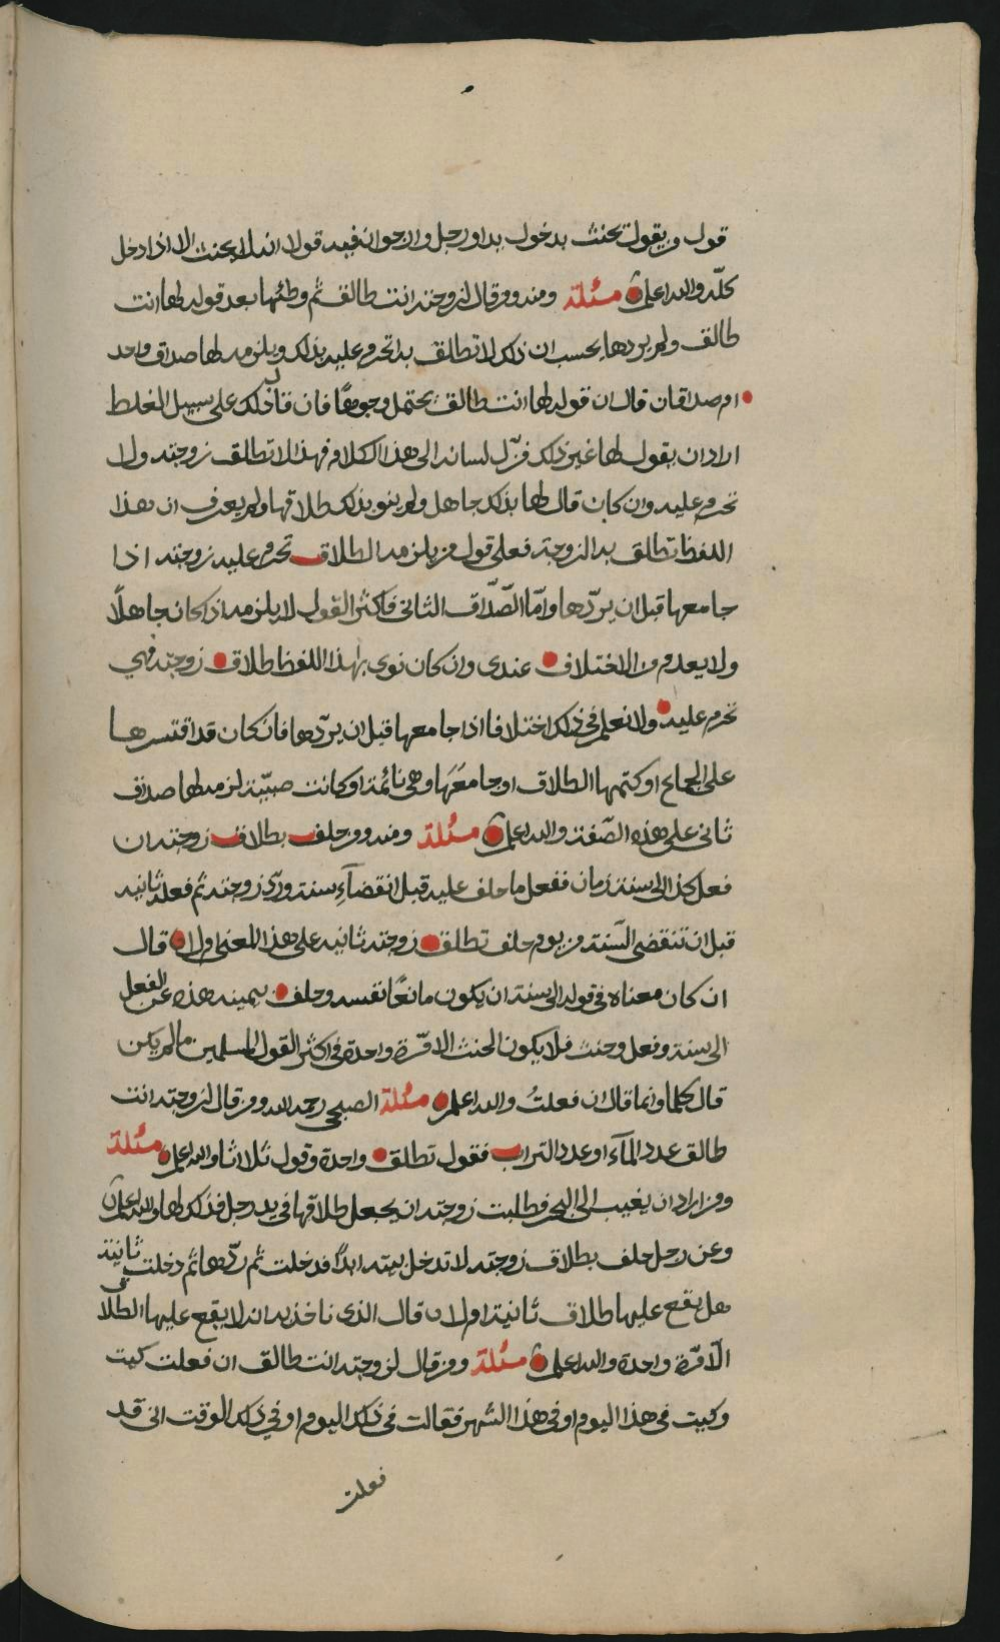 قول من يقول يحنث بدخول يد او رجل وارجو ان فيه قولا انه لا يحنث الا اذا دخل
كلّه والله اعلم مسئلة ومنه ومن قال لزوجته انت طالق ثم وطئها بعد قوله لها انت
طالق ولم يردها يحسب ان ذلك لا تطلق به اتحرم عليه بذلك ويلزمه لها صداق واحد
ام صداقان قال ان قوله لها انت طالق يحتمل وجوهًا فان قال ذلك على سبيل الغلط
اراد ان يقول لها غير ذلك فزّل لسانه الى هذا الكلام فهذا لا تطلق زوجته ولا
تحرم عليه وان كان قال لها بذلك جاهل ولم ينو بذلك طلاقها ولم يعرف ان هذا
اللفظ تطلق به الزوجة فعلى قول من يلزمه الطلاق تحرم عليه زوجته اذا
جامعها قبل ان يردّها وامّا الصّداق الثاني فاكثر القول لا يلزمه اذا كان جاهلًا
ولا يعدم من الاختلاف عندى وان كان نوى بهذا اللفظ طلاق زوجته فهي
تحرم عليه ولا نعلم في ذلك اختلافا اذا جامعها قبل ان يردّها فان كان قد اقتسرها
على الجماع او كتمها الطلاق او جامعَهَا وهى نائمة او كانت صبيّة لزمه لها صداق
ثانى على هذه الصّفة والله اعلم مسئلة ومنه ومن حلف بطلاق زوجته ان
فعل كذا الى سنة زمان ففعل ما حلف عليه قبل انقضآءِ سنة وردّ زوجته ثم فعله ثانيه
قبل ان تنقضى السّنة من يوم حلف تطلق زوجته ثانيه على هذا المعنى ام لا قال
ان كان معناه في قوله الى سنة ان يكون مانعًا نفسه وحلف بيمينه هذه عن الفعل
الى سنة وفعل وحنث فلا يكون الحنث الا مرّة واحدة في اكثر القول المسلمين ما لم يكن
قال كلما وانما قال ان فعلتُ والله اعلم مسئلة الصبحي رحمه الله ومن قال لزوجته انت
طالق عدد المآء او عدد التراب فقول تطلق واحدة وقول ثلاثا والله اعلم مسئلة
ومن اراد ان يغيب الى البحر فطلبت زوجته ان يجعل طلاقها في يد رجل فذلك لها والله اعلم
وعن رجل حلف بطلاق زوجته لا تدخل بيته ابدًا فدخلت ثم ردّها ثم دخلت ثانية
هل يقع عليها طلاق ثانية ام لا قال الذى ناخذ به انه لا يقع عليها الطلاق
الّا مرّة واحدة والله اعلم مسئلة ومن قال لزوجته انت طالق ان فعلت كيت
وكيت فى هذا اليوم او في هذا الشهر فقالت في ذلك اليوم او في ذلك الوقت انى قد
فعلت